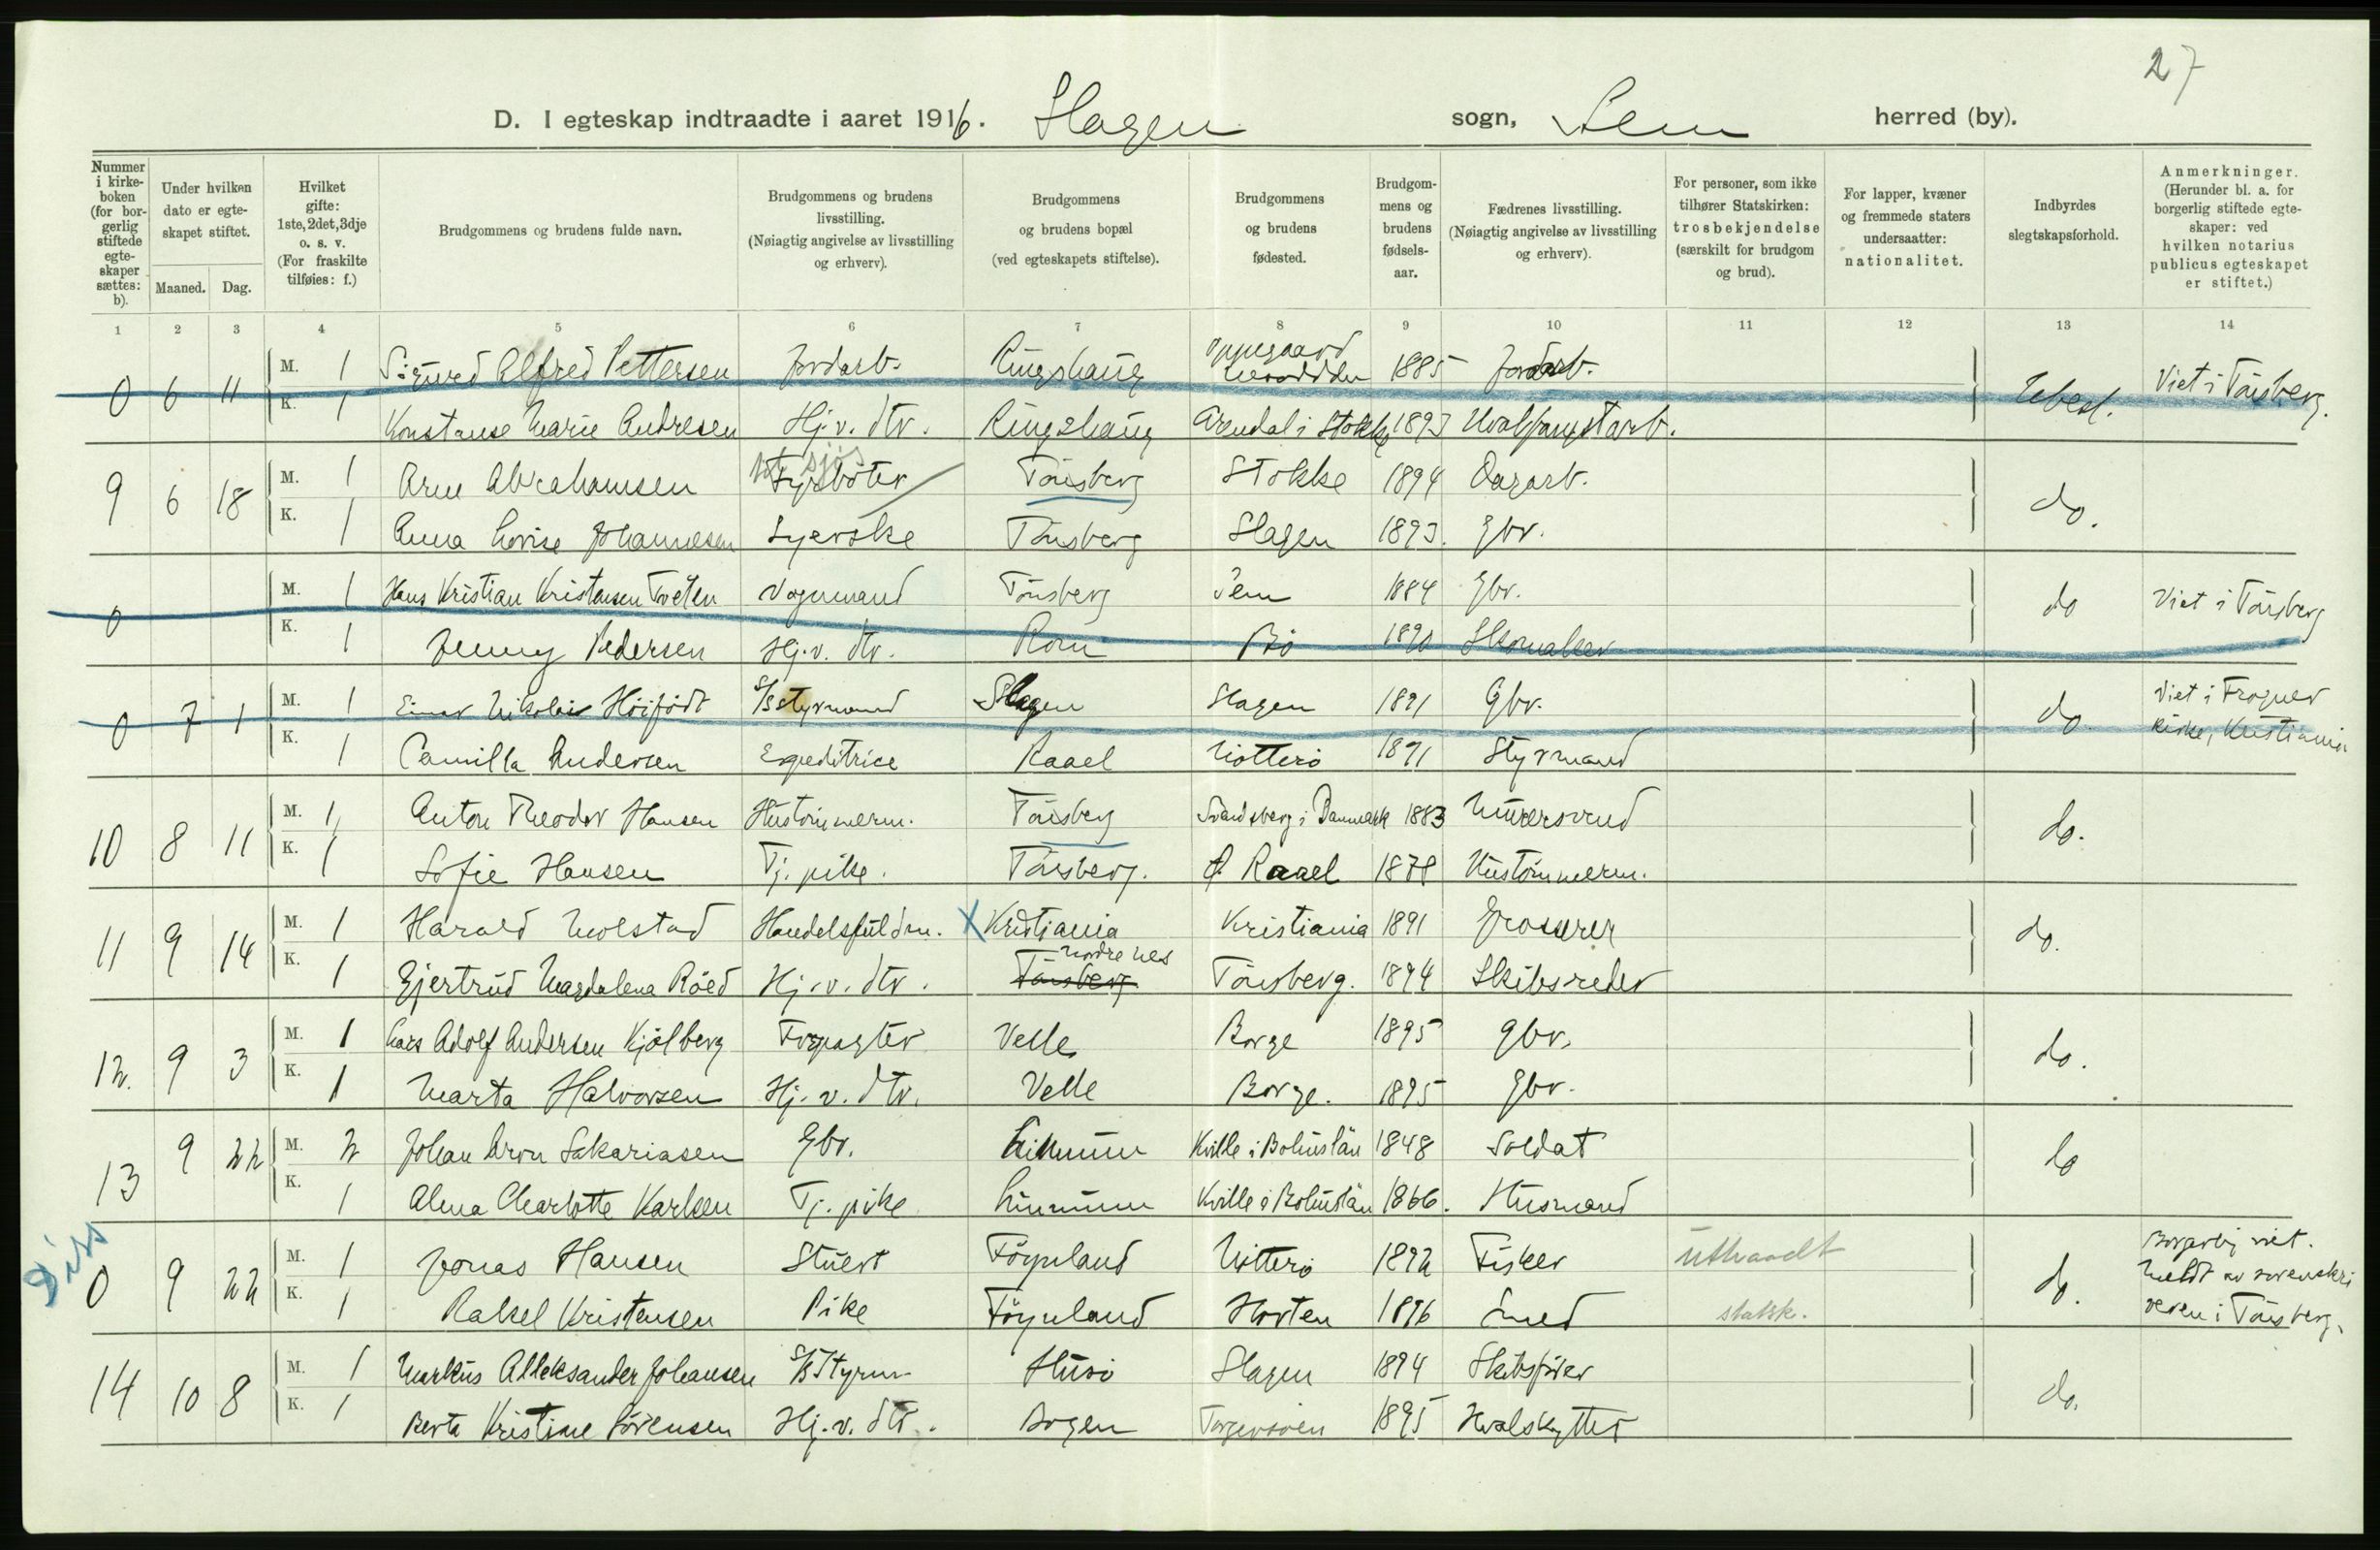 27
D. I egteskap indtraadte i aaret 1916. Slagen sogn, Sem herred (by).
Nummer i kirkeboken (for borgerlig stiftede egteskaper sættes: b).
Under hvilken dato er egteskapet stiftet.
Maaned. Dag.
Hvilket gifte: 1ste, 2det, 3dje o. s. v. (For fraskilte tilføies: f.)
Brudgommens og brudens fulde navn.
Brudgommens og brudens livsstilling. (Nøiagtig angivelse av livsstilling og erhverv).
Brudgommens og brudens bopæl (ved egteskapets stiftelse).
Brudgommens og brudens fødested.
Brudgommens og brudens fødselsaar.
Fædrenes livsstilling. (Nøiagtig angivelse av livsstilling og erhverv).
For personer, som ikke tilhører Statskirken: trosbekjendelse (særskilt for brudgom og brud).
For lapper, kvæner og fremmede staters undersaatter: nationalitet.
Indbyrdes slegtskapsforhold.
Anmerkninger. (Herunder bl. a. for borgerlig stiftede egteskaper: ved hvilken notarius publicus egteskapet er stiftet.)
1 2 3 4 5 6 7 8 9 10 11 12 13 14
0 6 11 M. 1 Sigurd Alfred Pettersen Jordarb. Ringshaug Oppegaard 1885 Jordarb. Ubesl. Viet i Tönsberg.
K. 1 Konstanse Marie Andresen Hj. v. dtr. Ringshaug Arendal i Stokke 1893 Hvalfangstarb.
9 6 18 M. 1 Arne Abrahamsen sjös Fyrböter Tönsberg Stokke 1894 Dagarb. do.
K. 1 Anna Lovise Johannesen Syerske Tönsberg Slagen 1893. Gbr.
0 M. 1 Hans Kristian Kristensen Tveten Vognmand Tönsberg Sem 1884 Gbr. do Viet i Tönsberg
K. 1 Jenny Pedersen Hj. v. dtr. Rom Bö 1890 Skomaker
0 7 1 M. 1 Einar Nikolai Höijödt S/S styrmand Slagen Slagen 1891 Gbr. do Viet i Frogner
kirke, Kristiania
K. 1 Camilla Andersen Expeditrice Raael Nötterö 1891 Styrmand
10 8 11 M. 1 Anton Theodor Hansen Hustömmerm. Tönsberg i Danmark 1883 Murersvend do.
K. 1 Sofie Hansen Tj. pike. Tönsberg. Raael 1878 Hustömmerm.
11 9 14 M. 1 Harald Molstad Handelsfuldm. X Kristiania Kristiania 1891 Grosserer do.
K. 1 Gjertrud Magdalena Röed Hj. v. dtr. Tönsberg Nordre Nes Tönsberg. 1894 Skibsreder
12. 9 3 M. 1 Lars Adolf Andersen Kjölberg Forpagter Velle Borge 1895 gbr. do.
K. 1 Marta Halvorsen Hj. v. dtr. Velle Borge. 1895 Gbr.
13 9 22 M. 2 Johan Aron Sakariasen Gbr. Linnum Kville i Bohuslän 1848 Soldat do
K. 1 Alma Charlotte Karlsen Tj. pike Linnum Kville i Bohuslän 1866. Husmand
Diss
0 9 22 M. 1 Jonas Hansen Stuert Föynland Nötterö 1892 Fisker uttraadt do. Borgerlig viet.
Meldt av sorenskri
veren i Tönsberg.
K. 1 Rakel Kristensen Pike Föynland Horten 1896 Smed statsk.
14 10 8 M. 1 Markus Alleksander Johansen S/S Styrm. Husö Slagen 1894 Skibsförer do.
K. 1 Berta Kristine Sörensen Hj. v. dtr. Bogen Torgersöen 1895 Hvalskytter